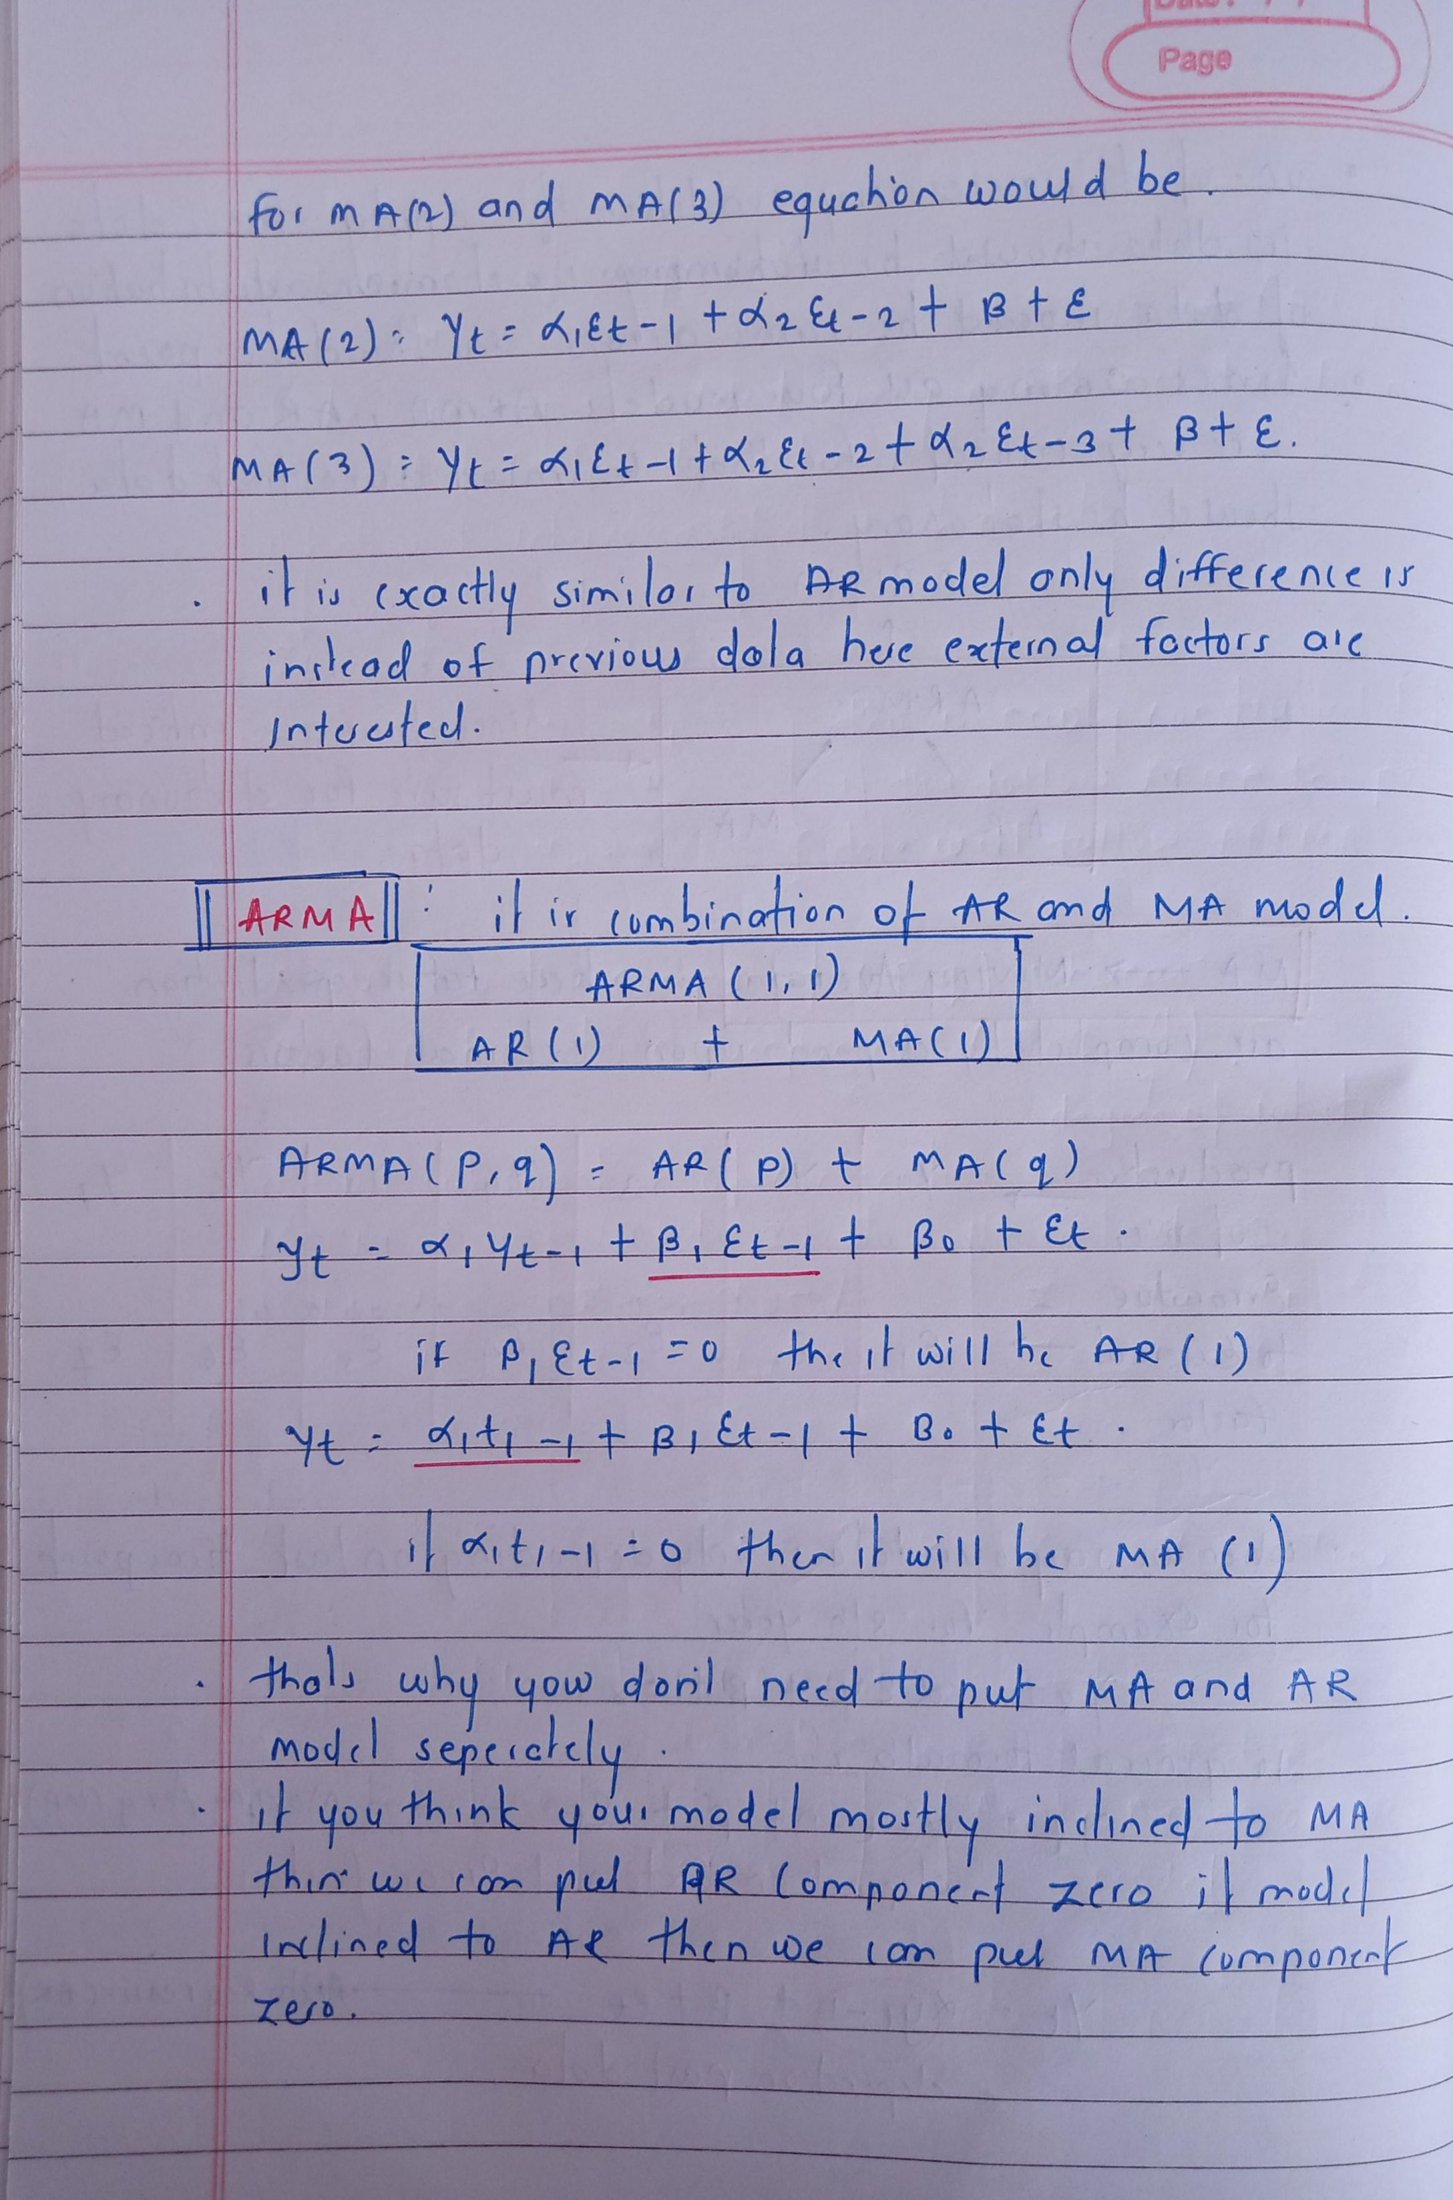 Date: / /
Page
for MA(2) and MA(3) equation would be.
MA(2): Yt = α1εt-1 + α2 εt-2 + β + ε
MA(3) = Yt = α1εt-1 + α2 εt-2 + α2 εt-3 + β + ε.
. it is exactly similar to AR model only difference is
instead of previous data here external factors are
Interested.
ARMA : it is combination of AR and MA model.
ARMA (1,1)
AR(1) + MA(1)
ARMA(P,q) = AR(P) + MA(q)
yt = α1Yt-1 + β1 εt-1 + β0 + εt.
if β1 εt-1 = 0 the it will be AR(1)
yt = α1t1-1 + β1 εt-1 + β0 + εt.
if α1t1-1 = 0 then it will be MA (1)
. thats why yow don't need to put MA and AR
model seperately.
. if you think your model mostly inclined to MA
then we can put AR component zero if model
inclined to AR then we can put MA component
zero.